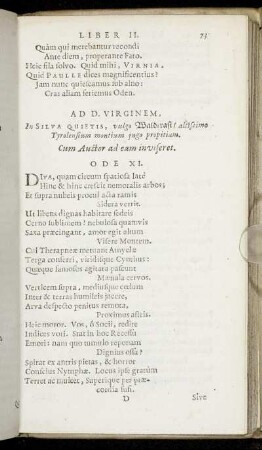 LIBER II. 73
Quàm qui merebantur recondi
Ante diem, properante Fato.
Heic fila solvo. Quid mihi, VIRNIA,
Quid PAULLE dices magnificentius?
Jam nunc quiescamus sub alno:
Cras aliam seriemus Oden.
AD D. VIRGINEM,
In SILVA QUIETIS, vulgo Waldrast/ altissimo
Tyrolensium montium jugo propitiam.
Cum Auctor ad eam inviseret.
ODE XI.
DIVA, quam circum spatiosa latè
Hinc & hinc crescit nemoralis arbos;
Et supra nubeis proceri acta ramis
Sidera verrit.
Ut libens dignas habitare sedeis
Cerno sublimem! nebulosa quamvis
Saxa præcingant, amor egit altum
Visere Montem.
Col Therapneæ metuant Amyclæ
Terga conscendi, viridisque Cynthus:
Quæque famosos agitata passunt
Mænala cervos.
Verticem supra, mediusque cœlum
Inter & terras humileis jacere,
Arva despecto penitus remota,
Proximus astris.
Heic moror. Vos, ô Socii, redite
Indices voti. Stat in hoc Recessu
Emori: nam quo tumulo reponam
Dignius ossa?
Spirat ex antris pietas, & horror
Conscius Nymphæ. Locus ipse gratum
Terret ac mulcet, Superique per præ-
cordia fusi.
D Sive